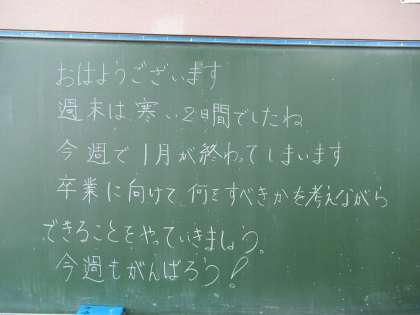 おはようございます
週末は寒い2日間でしたね
今週で1月が終わってしまいます
卒業に向けて何をすべきかを考えながら
できることをやっていきましょう。
今週もがんばろう!